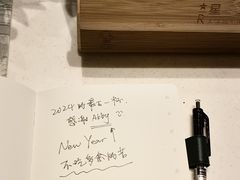 2024 的最后一杯
感谢 Abby
New Year
不吃多余的苦
星
R